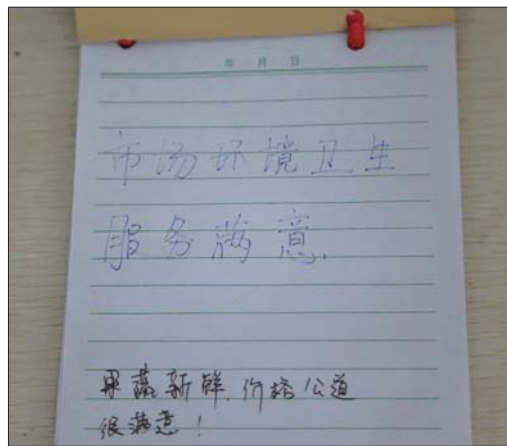 年 月 日
市场环境卫生
服务满意.
果蔬新鲜.价格公道
很满意！